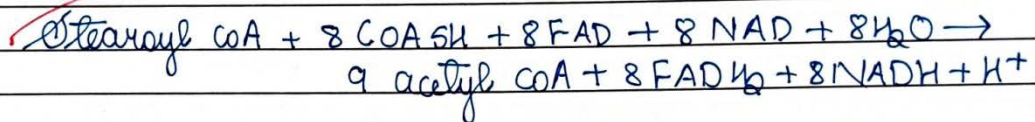 Stearoyl CoA + 8 COASH + 8 FAD + 8 NAD + 8H2O →
9 acetyl CoA + 8 FADH2 + 8 NADH + H+